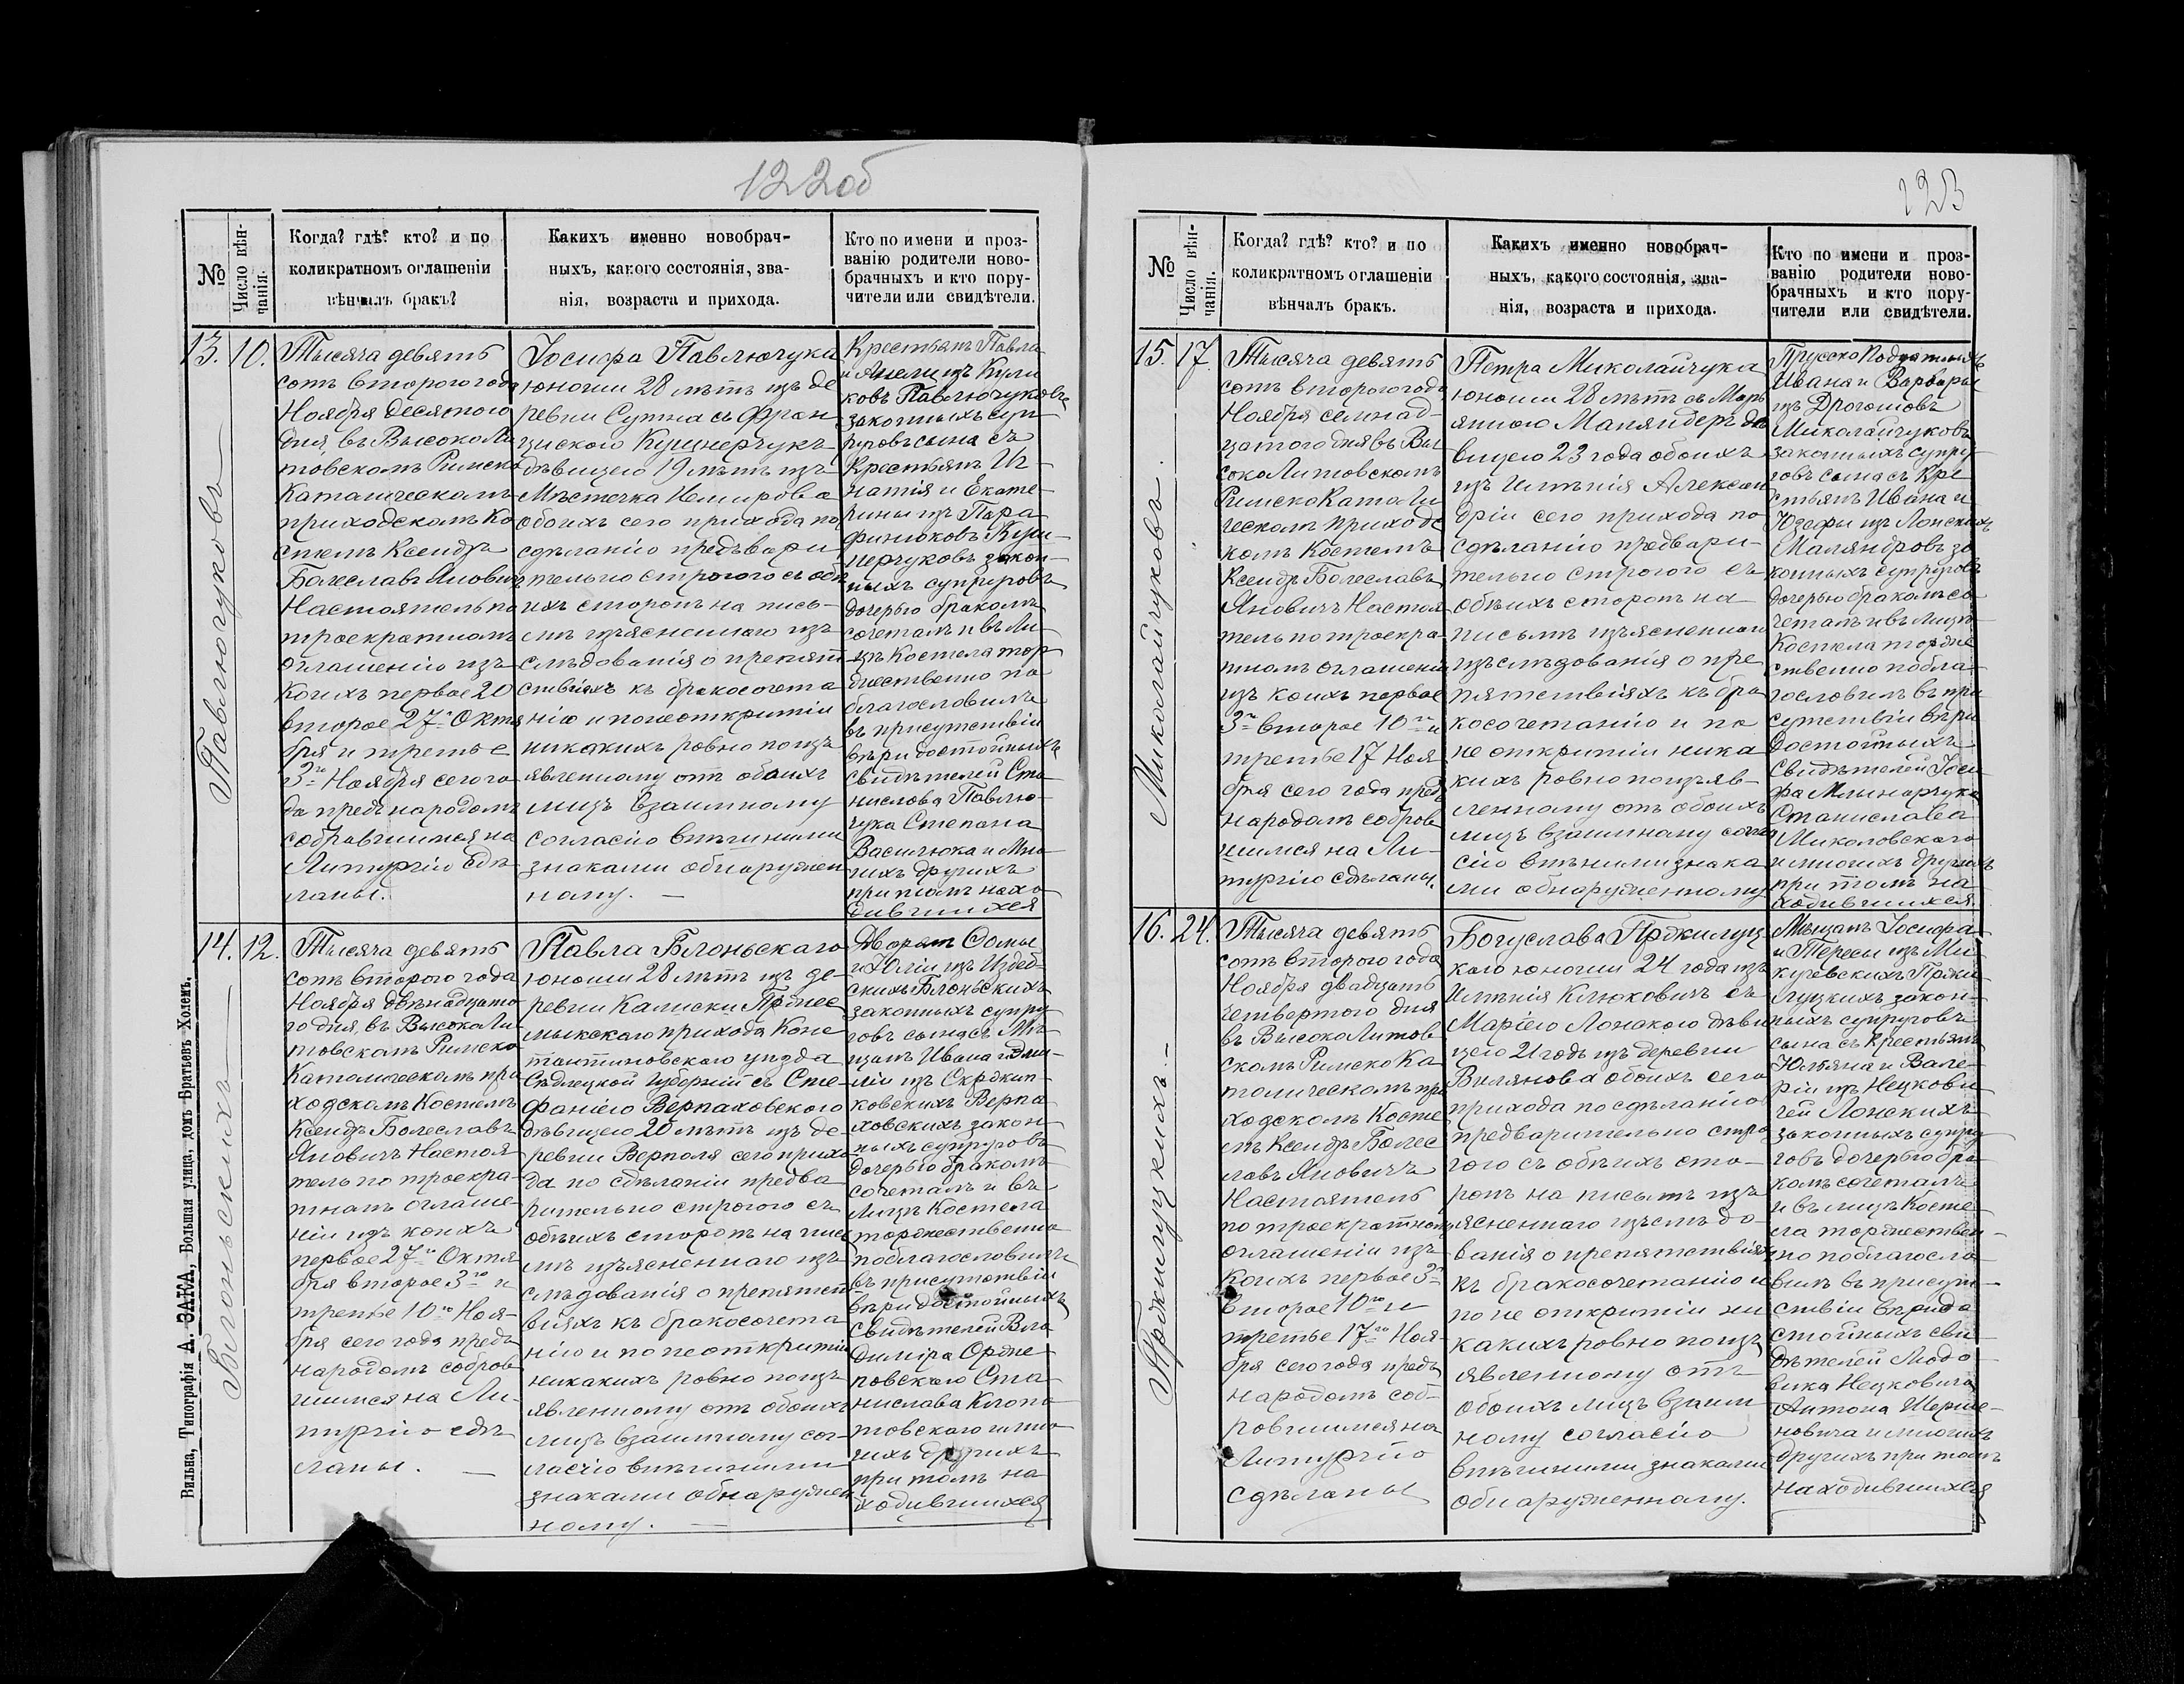 122об
№
Число вѣн-
чанія.
Когда? гдѣ? кто? и по
коликратномъ оглашеніи
вѣнчалъ бракъ?
Какихъ именно новобрач-
ныхъ, какого состоянія, зва-
нія, возраста и прихода.
Кто по имени и проз-
ванію родители ново-
брачныхъ и кто пору-
чители или свидѣтели.
13.
10.
Павлючуковъ
Тысяча девять
сотъ второго года
Ноября десятого
дня, въ Высоко Ли
товскомъ Римско
Католическомъ
приходскомъ Ко
стелѣ Ксендзъ
Болеславъ Яновичъ
Настоятель по
троекратномъ
оглашеніи изъ
коихъ первое 20
второе 27го Октя
бря и третье
3го Ноября сего го
да предъ народомъ
собравшимся на
Литургію сдѣ
ланы.
Іосифа Павлючука
юношу 28 лѣтъ изъ де
ревни Сутна съ Фран
цискою Кушнерчукъ
дѣвицею 19 лѣтъ изъ
Мѣстечка Немирова
обоихъ сего прихода по
сдѣланію предвари
тельно строгого съ обѣ
ихъ сторонъ на пись-
мѣ изъясненного изъ
слѣдованія о препят
ствіяхъ къ бракосочета
нію и по неоткрытіи
никакихъ ровно по изъ
явленному отъ обоихъ
лицъ взаимному
согласію внѣшними
знаками обнаружен
ному. —
Крестьянъ Павла
и Анели изъ Кули
ковъ Павлючуковъ
законныхъ суп
руговъ сына съ
Крестьянъ Иг
натія и Екате-
рины изъ Пара
финюковъ Куш-
нерчуковъ закон-
ныхъ супруговъ
дочерью бракомъ
сочеталъ и въ Ли-
цѣ Костела тор
жественно по
благословилъ
въ присутствіи
вѣри достойныхъ
свидѣтелей Ста
нислова Павлю-
чука Степана
Василюка и мно
гихъ другихъ
при томъ нахо
дившихся
14.
12.
Блоньскихъ
Тысяча девять
сотъ второго года
Ноября двѣнадцато
го дня, въ Высоко Ли-
товскомъ Римско
Католическомъ при
ходскомъ Костелѣ
Ксендзъ Болеславъ
Яновичъ Настоя-
тель по троекра-
тномъ оглаше-
ніи изъ коихъ
первое 27го Октя
бря второе 3го и
третье 10го Ноя-
бря сего года предъ
народомъ собрав
шимся на Ли-
тургію сдѣ
ланы. —
Павла Блоньскаго
юношу 28 лѣтъ изъ де-
ревни Калиски Пржес
мыкскаго прихода Конс
тантиновскаго уѣзда
Сѣдлецкой Губерніи съ Сте-
фаніею Верпаховскою
дѣвицею 20 лѣтъ изъ де-
ревни Верполя сего прихо
да по сдѣланіи предва
рительно строгого съ
обѣихъ сторонъ на пись
мѣ изъясненного изъ
слѣдованія о препятст
віяхъ къ бракосочета
нію и по неоткрытіи
никакихъ ровно по изъ
явленному отъ обоихъ
лицъ взаимному сог-
ласію внѣшними
знаками обнаружен
ному. —
Дворянъ Сомы
и Юліи изъ Издеб-
скихъ Блоньскихъ
законныхъ супру
говъ сына съ Мѣ
щанъ Ивана и Эми-
ліи изъ Скржип-
ковскихъ Верпа
ховскихъ закон-
ныхъ супруговъ
дочерью бракомъ
сочеталъ и въ
Лицѣ Костела
торжественно
поблагословилъ
въ присутствіи
вѣри достойныхъ
свидѣтелей Вла
диміра Орже
повскаго Ста-
нислава Клопо
товскаго и мно
гихъ другихъ
при томъ на
ходившихся
Вильна, Типографія А. ЗАКА, Большая улица, домъ Братьевъ Холемъ.
123
№
Число вѣн-
чанія.
Когда? гдѣ? кто? и по
коликратномъ оглашеніи
вѣнчалъ бракъ.
Какихъ именно новобрач-
ныхъ, какого состоянія, зва-
нія, возраста и прихода.
Кто по имени и проз-
ванію родители ново-
брачныхъ и кто пору-
чители или свидѣтели.
15.
17.
Миколайчуковъ.
Тысяча девять
сотъ второго года
Ноября семнад-
цатого дня въ Вы
соко Литовскомъ
Римско Катали
ческомъ приходс
комъ Костелѣ
Ксендзъ Болеславъ
Яновичъ Настоя
тель по троекра-
тномъ оглашеніи
изъ коихъ первое
3го второе 10го и
третье 17 Ноя
бря сего года предъ
народомъ собрав
шимся на Ли-
тургію сдѣланы.
Петра Миколайчука
юношу 28 лѣтъ съ Марь
янною Маляндеръ дѣ
вицею 23 года обоихъ
изъ Имѣнія Алексан
дріи сего прихода по
сдѣланію предвари-
тельно строгого съ
обѣихъ сторонъ на
письмѣ изъясненнаго
изъслѣдованія о пре
пятствіяхъ къ бра
косочетанію и по
не открытіи ника
кихъ ровно по изъяв-
ленному отъ обоихъ
лицъ взаимному согла
сію внѣшними знака
ми обнаруженному
Прусско Подданныхъ
Ивана и Варвары
изъ Дрогошовъ
Миколайчуковъ
законныхъ супру-
говъ сына съ Кре
стьянъ Ивана и
Юзефы изъ Лонскихъ
Маляндровъ за
конныхъ супруговъ
дочерью бракомъ со
четалъ и въ лицѣ
Костела торже
ственно побла-
гословилъ въ при
сутствіи вѣри
достойныхъ
свидѣтелей Іоси-
фа Млынарчука
Станислава
Миколовскаго
и многихъ другихъ
при томъ на
ходившихся.
16.
24.
Пржилуцкихъ. —
Тысяча девять
сотъ второго года
Ноября двадцать
четвертого дня
въ Высоко Литов
скомъ Римско Ка
толическомъ при
ходскомъ Косте
лѣ Ксендзъ Болес
лавъ Яновичъ
Настоятель
по троекратномъ
оглашеніи изъ
коихъ первое 3го
второе 10го и
третье 17го Ноя-
бря сего года предъ
народомъ соб-
ровшимся на
Литургію
сдѣланы
Богуслава Пржилуц
каго юношу 24 года изъ
Имѣнія Клюковичъ съ
Маріею Лонскою дѣви
цею 21 годъ изъ деревни
Вилянова обоихъ сего
прихода по сдѣланію
предварительно стро
гого съ обѣихъ сто-
ронъ на письмѣ изъ
ясненнаго изъслѣдо-
ванія о препятствіяхъ
къ бракосочетанію и
по не открытіи ни
какихъ ровно по изъ
явленному отъ
обоихъ лицъ взаим
ному согласію
внѣшними знаками
обнаруженному.
Мѣщанъ Іосифа
и Тересы изъ Ми-
кучевскихъ Пржи-
луцкихъ закон-
ныхъ супруговъ
сына съ Крестьянъ
Юльяна и Вале-
ріи изъ Нецкови
чей Лонскихъ
законныхъ супру
говъ дочерью бра
комъ сочеталъ
и въ лицѣ Косте-
ла торжествен-
но поблагосло-
вилъ въ присут-
ствіи вѣридо
стойныхъ сви-
дѣтелей Людо
вика Нецковича
Антона Шерше-
новича и многихъ
другихъ при томъ
находившихся